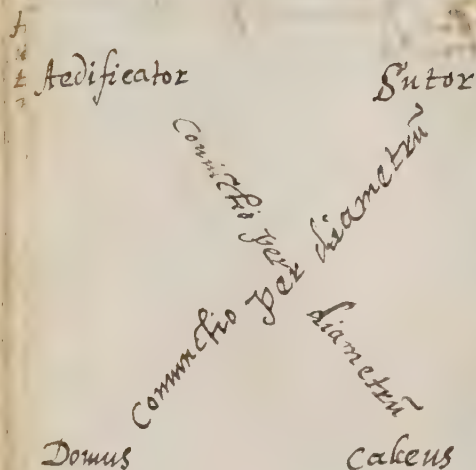 Aedificator
Sutor
Coniu[n]ctio per diametrū
Coniunctio per diametrū
Domus
Calceus